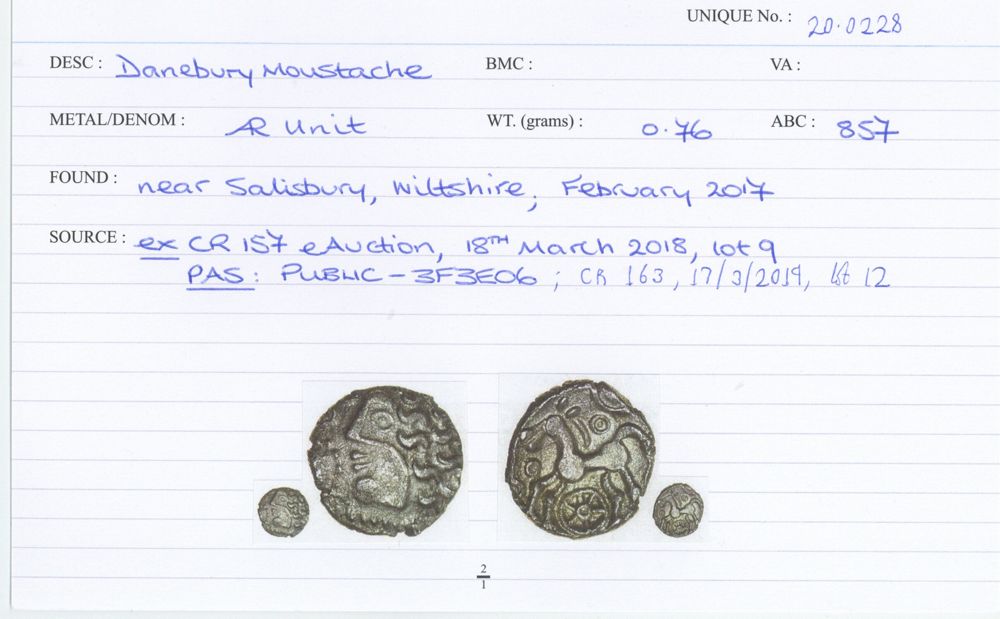 UNIQUE No. : 20.0228
DESC : Danebury Moustache BMC : VA :
METAL/DENOM : AR Unit WT. (grams) : 0.76 ABC : 857
FOUND : near Salisbury, Wiltshire; February 2017
SOURCE : ex CR 157 eAuction, 18TH March 2018, lot 9
PAS : PUBLIC - 3F3E06 ; CR 163, 17/3/2019, lot 12
2
1